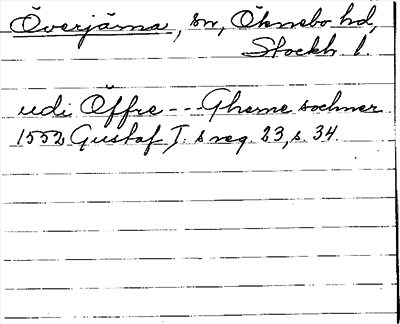 Överjärna, sn, Öknebo hd,
Stockh l.
udi Öffre --- Gherne sochner
1552 Gustaf I:s reg. 23, s. 34.